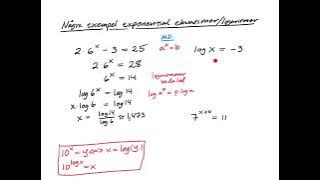 Några exempel exponential ekvationer/logaritmer
2·6^x − 3 = 25
2·6^x = 28
6^x = 14
log 6^x = log 14
x·log 6 = log 14
x = log 14 / log 6 ≈ 1,473
a^x = b
log a^p = p·log a
log x = −3
7^(x+4) = 11
10^x = y <=> x = log(y)
10^(log x) = x